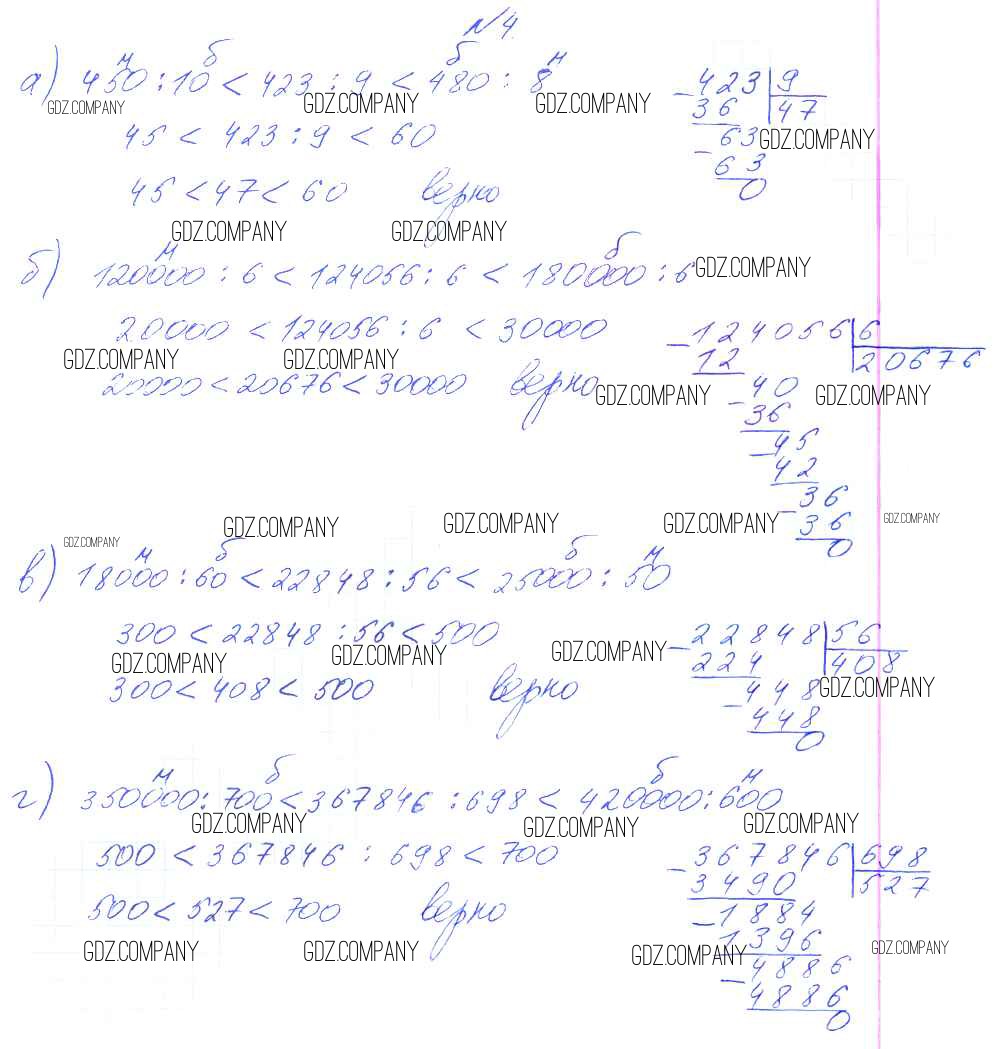 №4.
м б б м
а) 450 : 10 < 423 : 9 < 480 : 8
GDZ.COMPANY GDZ.COMPANY GDZ.COMPANY
45 < 423 : 9 < 60
45 < 47 < 60 верно
423 9
36 47
63 GDZ.COMPANY
63
0
GDZ.COMPANY GDZ.COMPANY
м б
б) 120000 : 6 < 124056 : 6 < 180000 : 6
GDZ.COMPANY
20000 < 124056 : 6 < 30000
GDZ.COMPANY GDZ.COMPANY
20000 < 20676 < 30000 верно
124056 6
12 20676
40
GDZ.COMPANY GDZ.COMPANY
36
45
42
36
36
0
GDZ.COMPANY GDZ.COMPANY GDZ.COMPANY GDZ.COMPANY
GDZ.COMPANY
м б б м
в) 18000 : 60 < 22848 : 56 < 25000 : 50
300 < 22848 : 56 < 500
GDZ.COMPANY GDZ.COMPANY GDZ.COMPANY
300 < 408 < 500 верно
22848 56
224 408
GDZ.COMPANY
448
448
0
м б б м
г) 350000 : 700 < 367846 : 698 < 420000 : 600
GDZ.COMPANY GDZ.COMPANY GDZ.COMPANY
500 < 367846 : 698 < 700
500 < 527 < 700 верно
367846 698
3490 527
1884
1396
GDZ.COMPANY GDZ.COMPANY GDZ.COMPANY GDZ.COMPANY
4886
4886
0